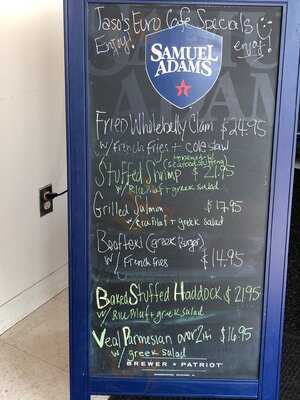 Jaso's Euro Cafe Specials
Enjoy! enjoy!
SAMUEL
ADAMS
Fried Wholebelly Clam $24.95
w/ French Fries + cole slaw
Stuffed Shrimp $21.95
(seafood stuffing)
w/ Rice Pilaf + greek salad
Grilled Salmon $17.95
w/ Rice Pilaf + greek salad
Beefteki (greek burger)
w/ French Fries $14.95
Baked Stuffed Haddock $21.95
w/ Rice Pilaf + greek salad
Veal Parmesian over Ziti $16.95
w/ greek salad
BREWER ★ PATRIOT